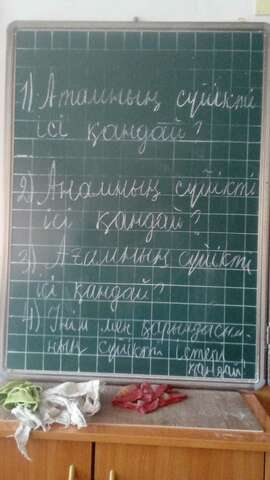 1) Атамның сүйікті
ісі қандай?
2) Анамның сүйікті
ісі қандай?
3) Ағамның сүйікті
ісі қандай?
4) Інім мен қарындасым-
ның сүйікті істері
қандай?